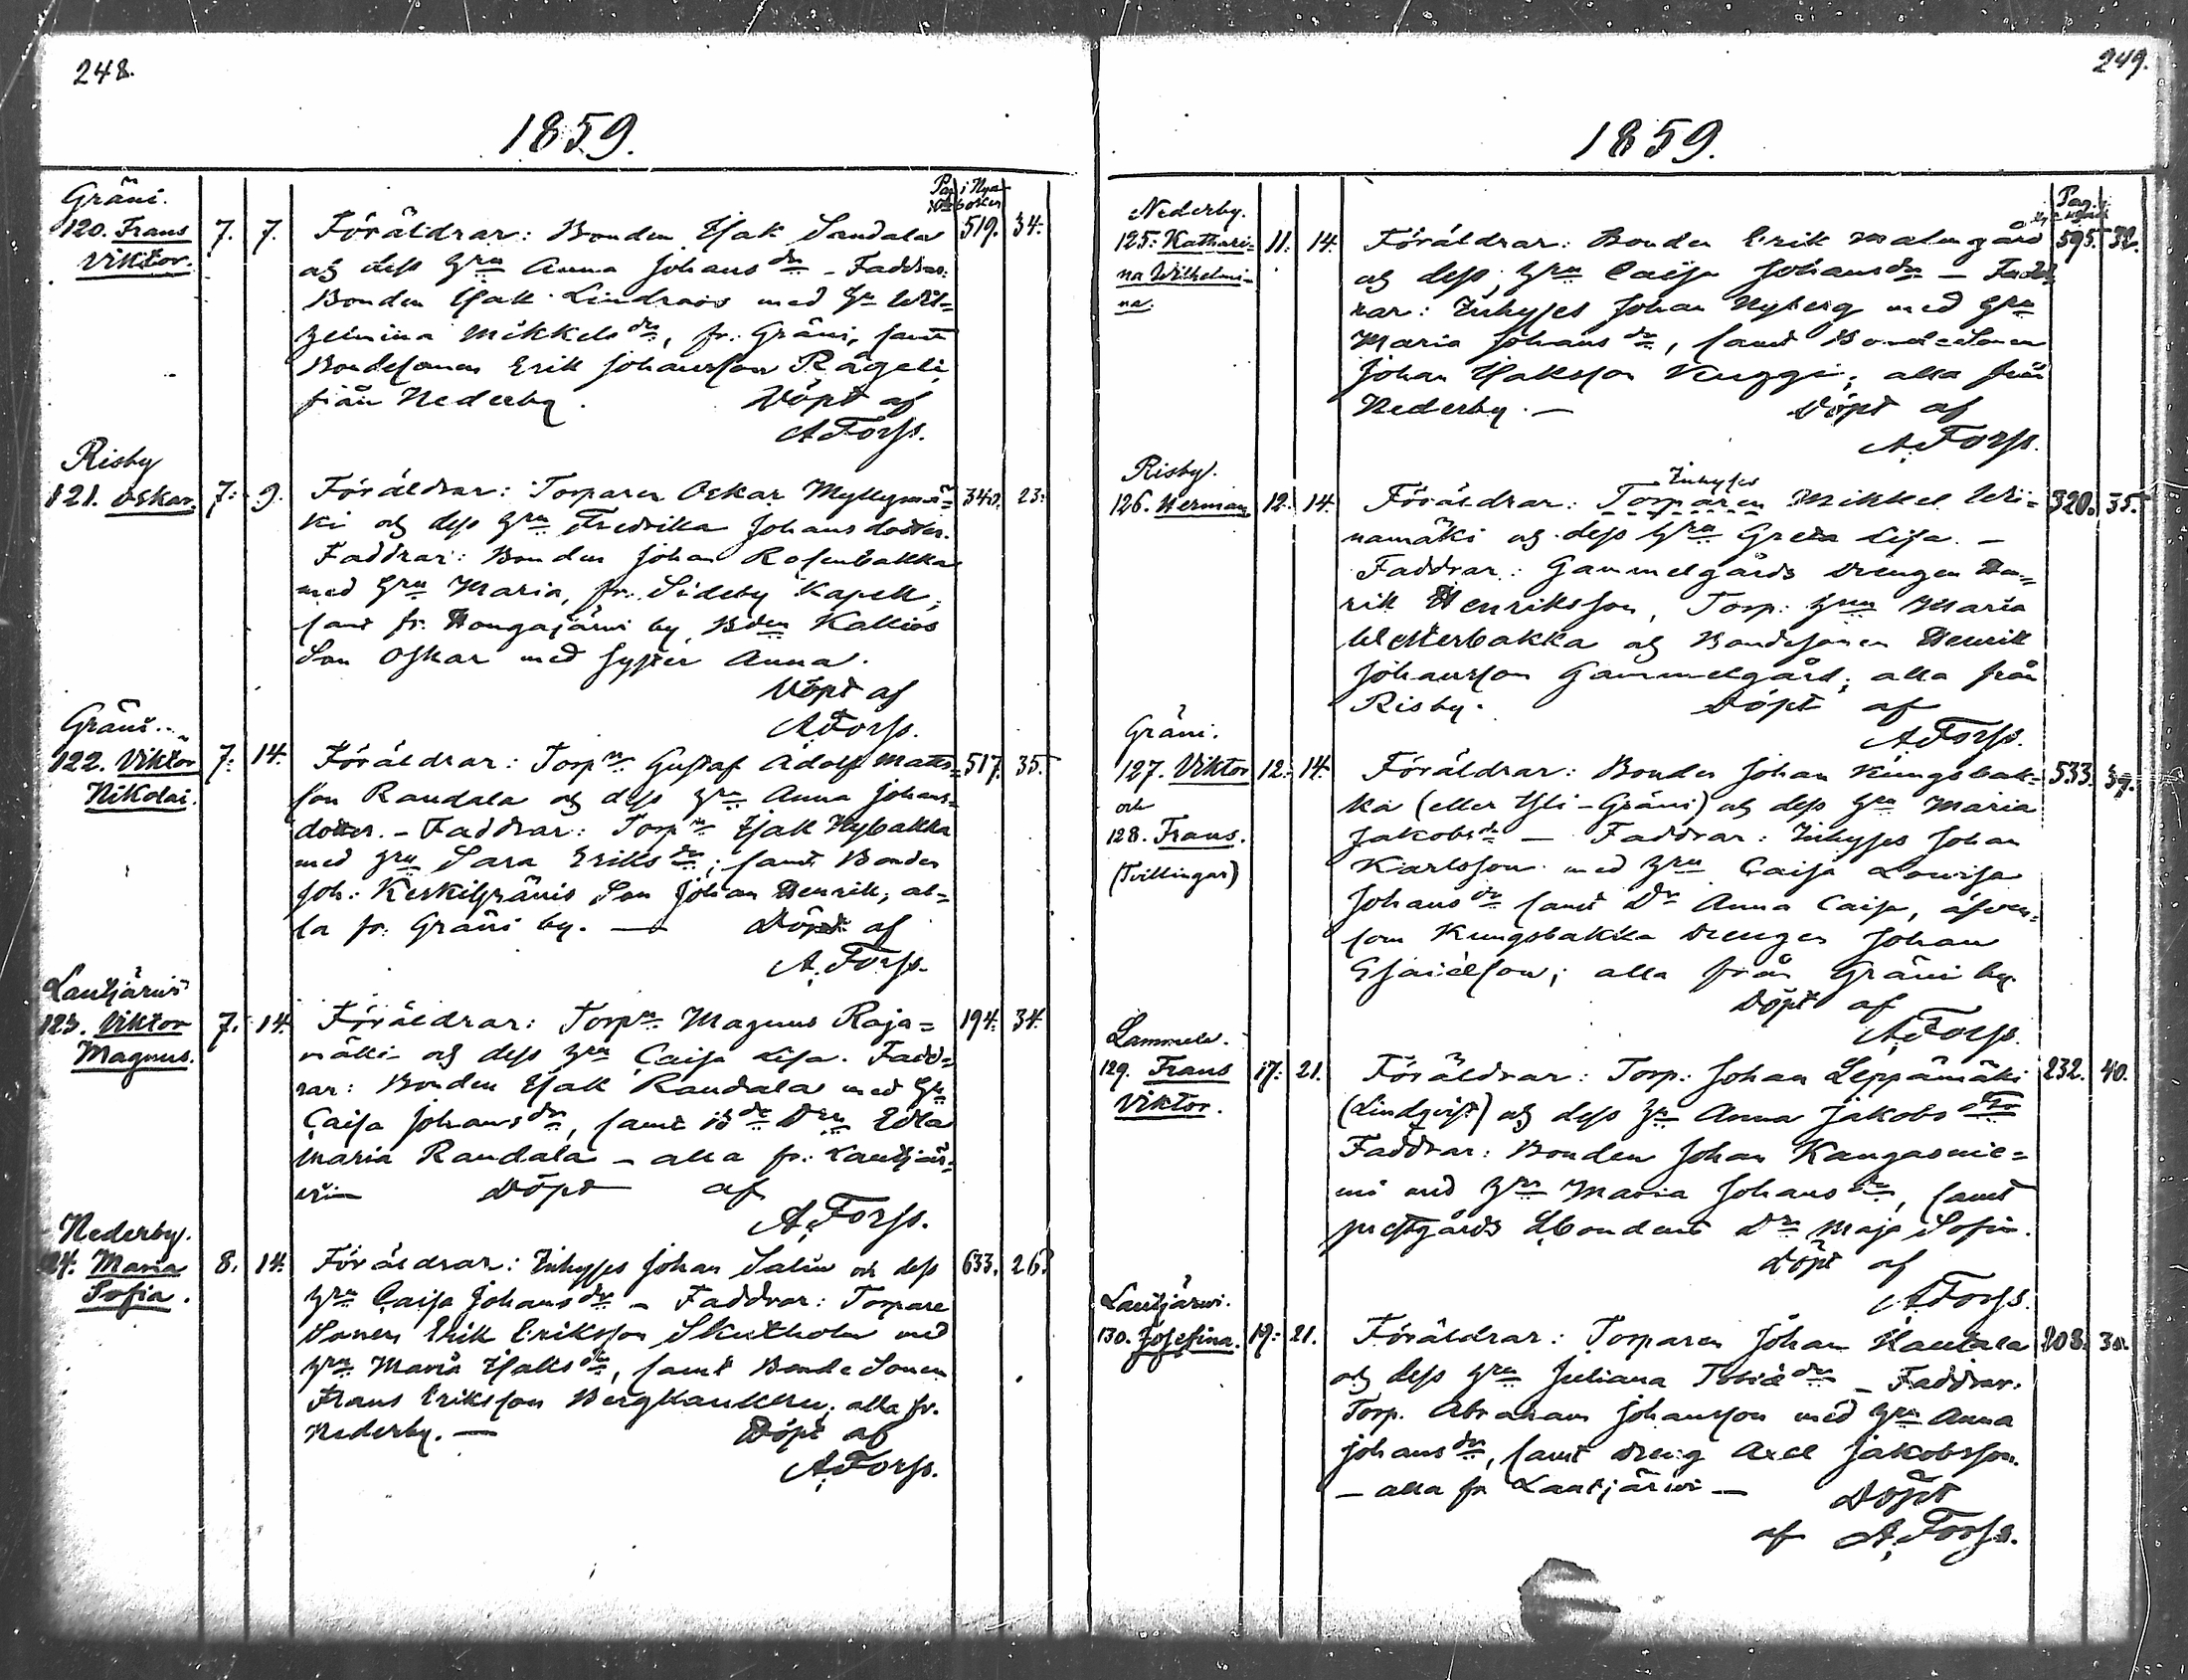 248.
1859.
Pag. i Nya
Gräni.
120. Frans
Viktor.
7. 7.
Föräldrar: Bonden Isak Sandala 519. 34.
och dess Hru Anna Johansdr – Faddrar:
Bonden Isak Lindroos med Hr Wil-
helmina Mikkelsdr, fr. Gräni, samt
Bondesonen Erik Johansson Rägeli
från Nederby. Döpt af
A. Forss.
Risby
121. Oskar. 7. 9.
Föräldrar: Torparen Oskar Myllymä- 340. 23.
ki och dess Hru Fredrika Johansdotter.
Faddrar: Bonden Johan Rosenbakka
med Hru Maria, fr. Sideby Kapell,
samt fr. Hongajärwi by, Bden Kallios
Son Oskar med syster Anna.
Döpt af
A. Forss.
Gräni.
122. Viktor
Nikolai.
7. 14.
Föräldrar: Torpn Gustaf Adolf Matts- 517. 35.
son Randala och dess Hru Anna Johans-
dotter. – Faddrar: Torpn Isak Nybakka
med Hru Sara Eriksdr; samt Bonden
Joh: Keskigränis Son Johan Henrik, al-
la fr. Gräni by. — Döpt af
A. Forss.
Lautjärwi
123. Viktor
Magnus.
7. 14.
Föräldrar: Torpn Magnus Raja- 194. 34.
mäki och dess Hru Caisa Lisa. Fadd-
rar: Bonden Isak Randala med Hru
Caisa Johansdr, samt Bde Drn Edla
Maria Randala – alla fr. Lautjär-
wi — Döpt af
A. Forss.
Nederby.
124. Maria
Sofia.
8. 14.
Föräldrar: Inhyses Johan Salin och dess 633. 26.
Hru Caisa Johansdr – Faddrar: Torpare
Sonen Erik Eriksson Skutholm med
Hru Maria Isaksdr, samt Bonde Sonen
Frans Eriksson Bergkaukkru, alla fr.
Nederby. — Döpt af
A. Forss.
249.
1859.
Pag. i
Nederby.
125. Kathari-
na Wilhelmi-
na.
11. 14.
Föräldrar: Bonden Erik Malmgård 595. 32.
och dess Hru Caisa Johansdr – Fadd-
rar: Inhyses Johan Nyberg med Hru
Maria Johansdr, samt BondeSonen
Johan Isaksson Kuggi, alla från
Nederby. — Döpt af
A. Forss.
Risby.
126. Herman. 12. 14.
Inhyses
Föräldrar: Torparen Mikkel Wii- 320. 35.
namäki och dess Hru Greta Lisa. –
Faddrar: Gammelgårds Drengen Hen-
rik Henriksson, Torp: Hru Maria
Westerbakka och Bondesonen Henrik
Johansson Gammelgård, alla från
Risby. Döpt af
A. Forss.
Gräni.
127. Viktor
och
128. Frans.
(Tvillingar)
12. 14.
Föräldrar: Bonden Johan Kungsbak- 533. 37.
ka (eller Yli-Gräni) och dess Hru Maria
Jakobsdr – Faddrar: Inhyses Johan
Karlsson med Hru Caisa Lovisa
Johansdr samt Dr Anna Caisa, äfven-
som Kungsbakka Drengen Johan
Esaiëson; alla från Gräni by.
Döpt af
A. Forss.
Lammela.
129. Frans
Viktor.
17. 21.
Föräldrar: Torp: Johan Leppämäki 232. 40.
(Lindqvist) och dess Hru Anna Jakobsdtr
Faddrar: Bonden Johan Kangasnie-
mi med Hru Maria Johansdr, samt
prestgårds Dr Maja Sofia.
Döpt af
A. Forss.
Lautjärwi.
130. Josefina. 19. 21.
Föräldrar: Torparen Johan Hautala 203. 30.
och dess Hru Juliana Tobiædr – Faddrar:
Torp. Abraham Johansson med Hru Anna
Johansdr, samt Dreng Axel Jakobsson.
– alla fr Lautjärwi – Döpt
af A. Forss.